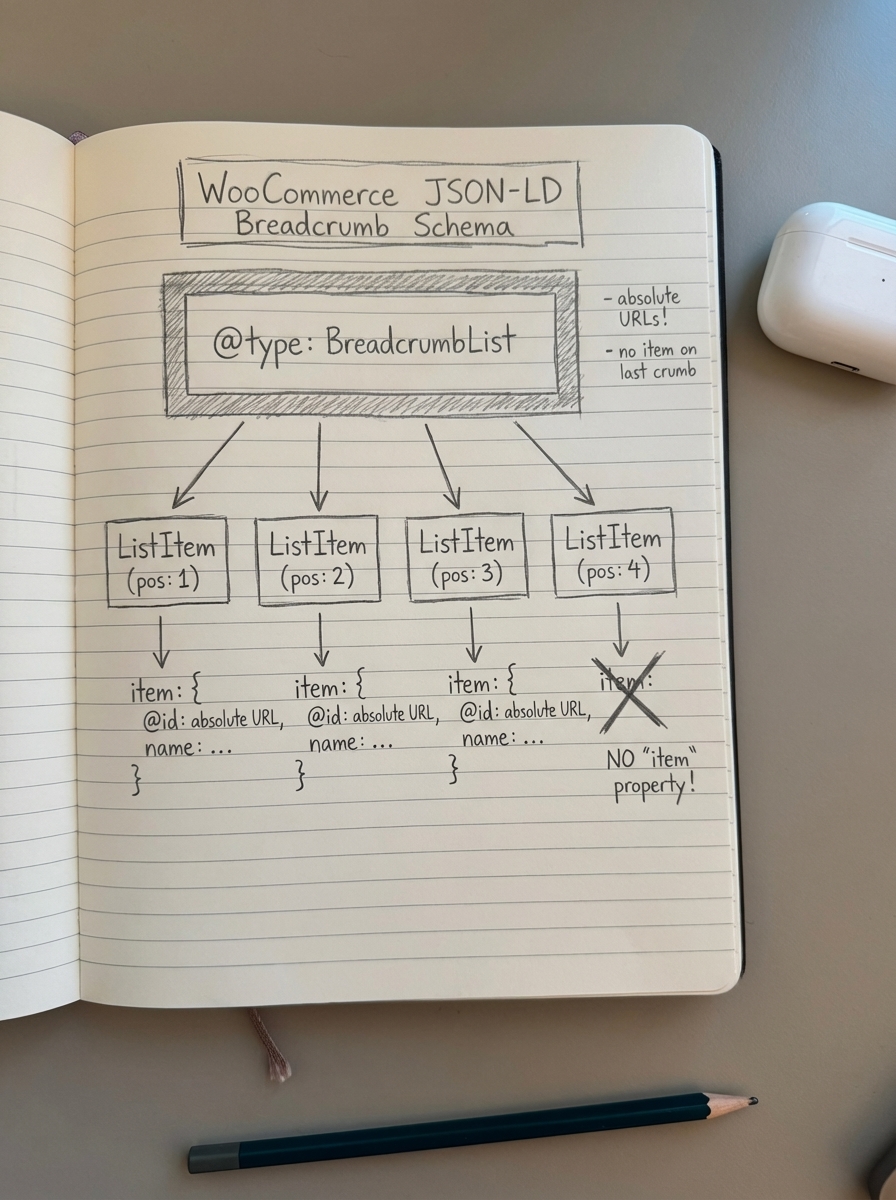 WooCommerce JSON-LD
Breadcrumb Schema
@type: BreadcrumbList
- absolute
URLs!
- no item on
last crumb
ListItem
(pos: 1)
ListItem
(pos: 2)
ListItem
(pos: 3)
ListItem
(pos: 4)
item: {
@id: absolute URL,
name: ...
}
item: {
@id: absolute URL,
name: ...
}
item: {
@id: absolute URL,
name: ...
}
item:
NO "item"
property!